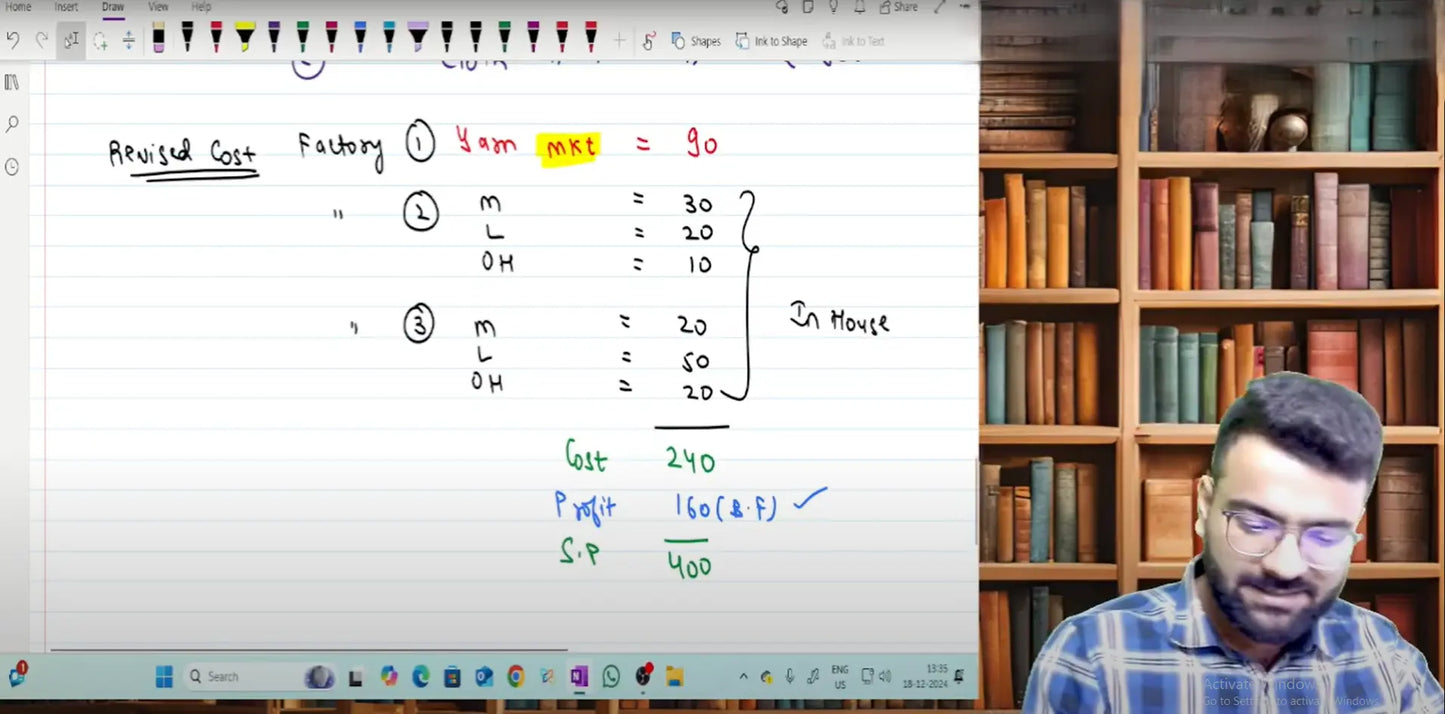 Home Insert Draw View Help
Share
Shapes Ink to Shape Ink to Text
Revised Cost Factory ① Yarn MKt = 90
" ② M = 30
L = 20
OH = 10
" ③ M = 20
L = 50
OH = 20
In House
Cost 240
Profit 160 (B.F) ✓
S.P 400
Search
ENG
US
13:35
18-12-2024
Activate Windows
Go to Settings to activate Windows.